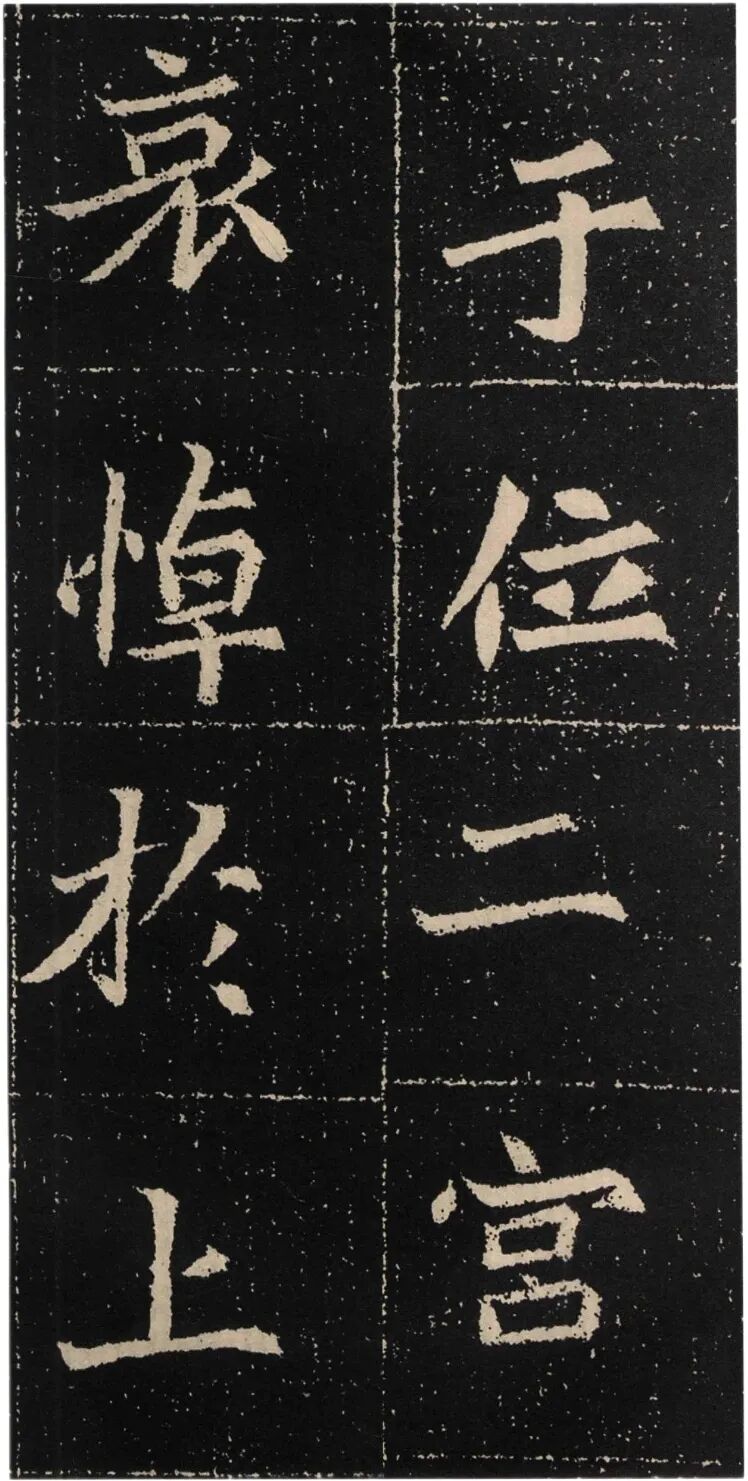 于位二宫
哀悼於上